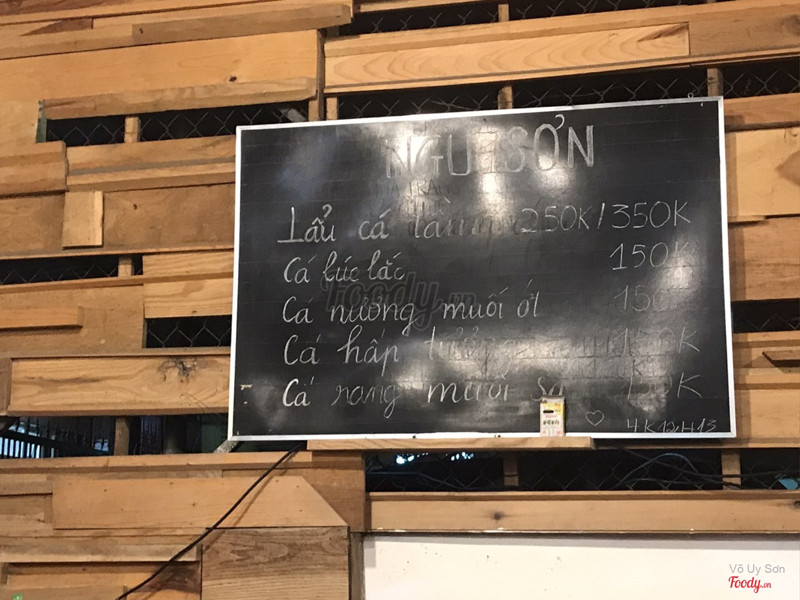 SƠN
Lẩu cá 250K/350K
Cá lúc lắc 150K
Cá nướng muối ớt 150K
Cá hấp 150K
Cá rang muối 150K
Foody.vn
Võ Uy Sơn
Foody.vn